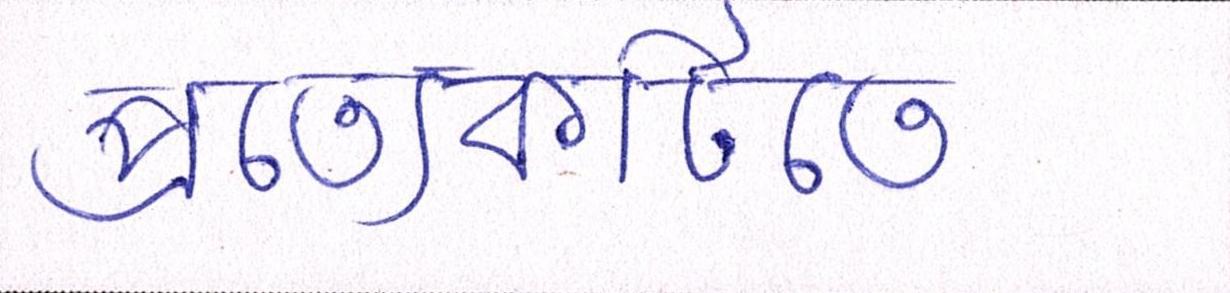 প্রত্যেকটিতে